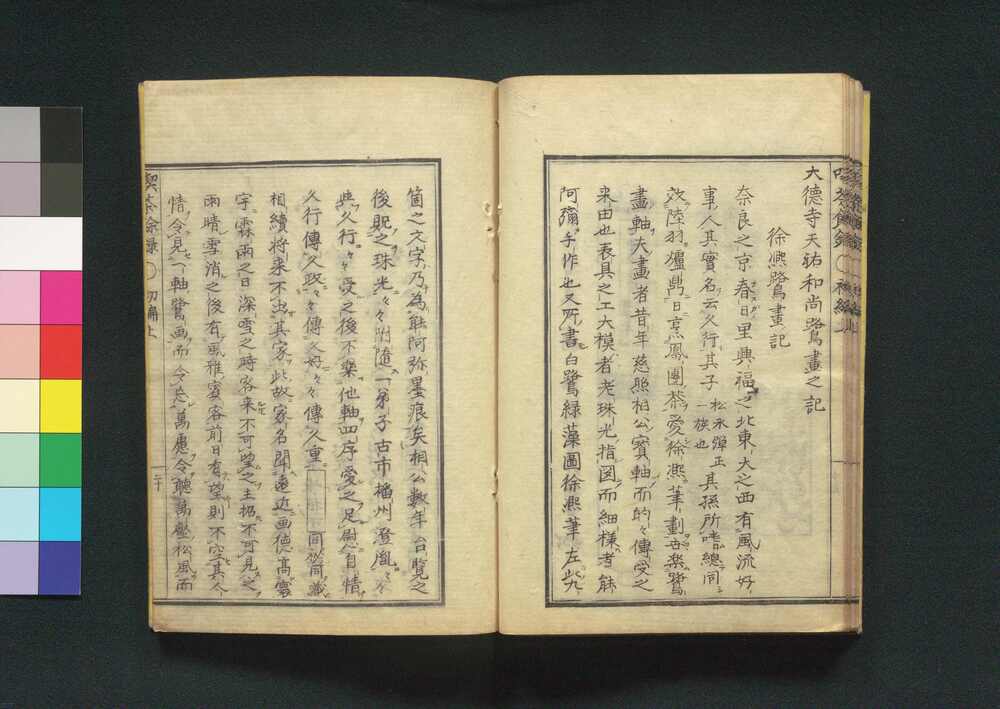 大德寺天祐和尚鷺畫之記
徐熙鷺畫記
奈良之京春日里興福之北東大之西有風流好
事人其實名云久行其子松永彈正一族也具孫所嗜總同
效陸羽爐鼎日烹鳳團茶愛徐熙筆劃白鷺
畵軸夫畫者昔年慈照相公寳軸而的々傳受之
来由也表具之工大模者老珠光指図而細様者能
阿彌手作也又所書白鷺緑藻圖徐熙筆左此九
箇之文字乃為能阿弥墨痕矣相公數年台覧之
後賜之珠光々々附隨一弟子古市播州澄胤々々
与久行々々受之後不楽他軸四序愛之足慰自情
久行傳久政々々傳久好々々傳久重
相續将来不出其家此故家名聞遠近画德高寰
宇霖雨之日深雪之時客来不可望之主招不可見之
雨晴雪消之後有風雅賓客前日有望則不空其久
情令見一軸鷺画而令忘萬慮令聴萬壑松風而
喫茶余録 初編上
二十